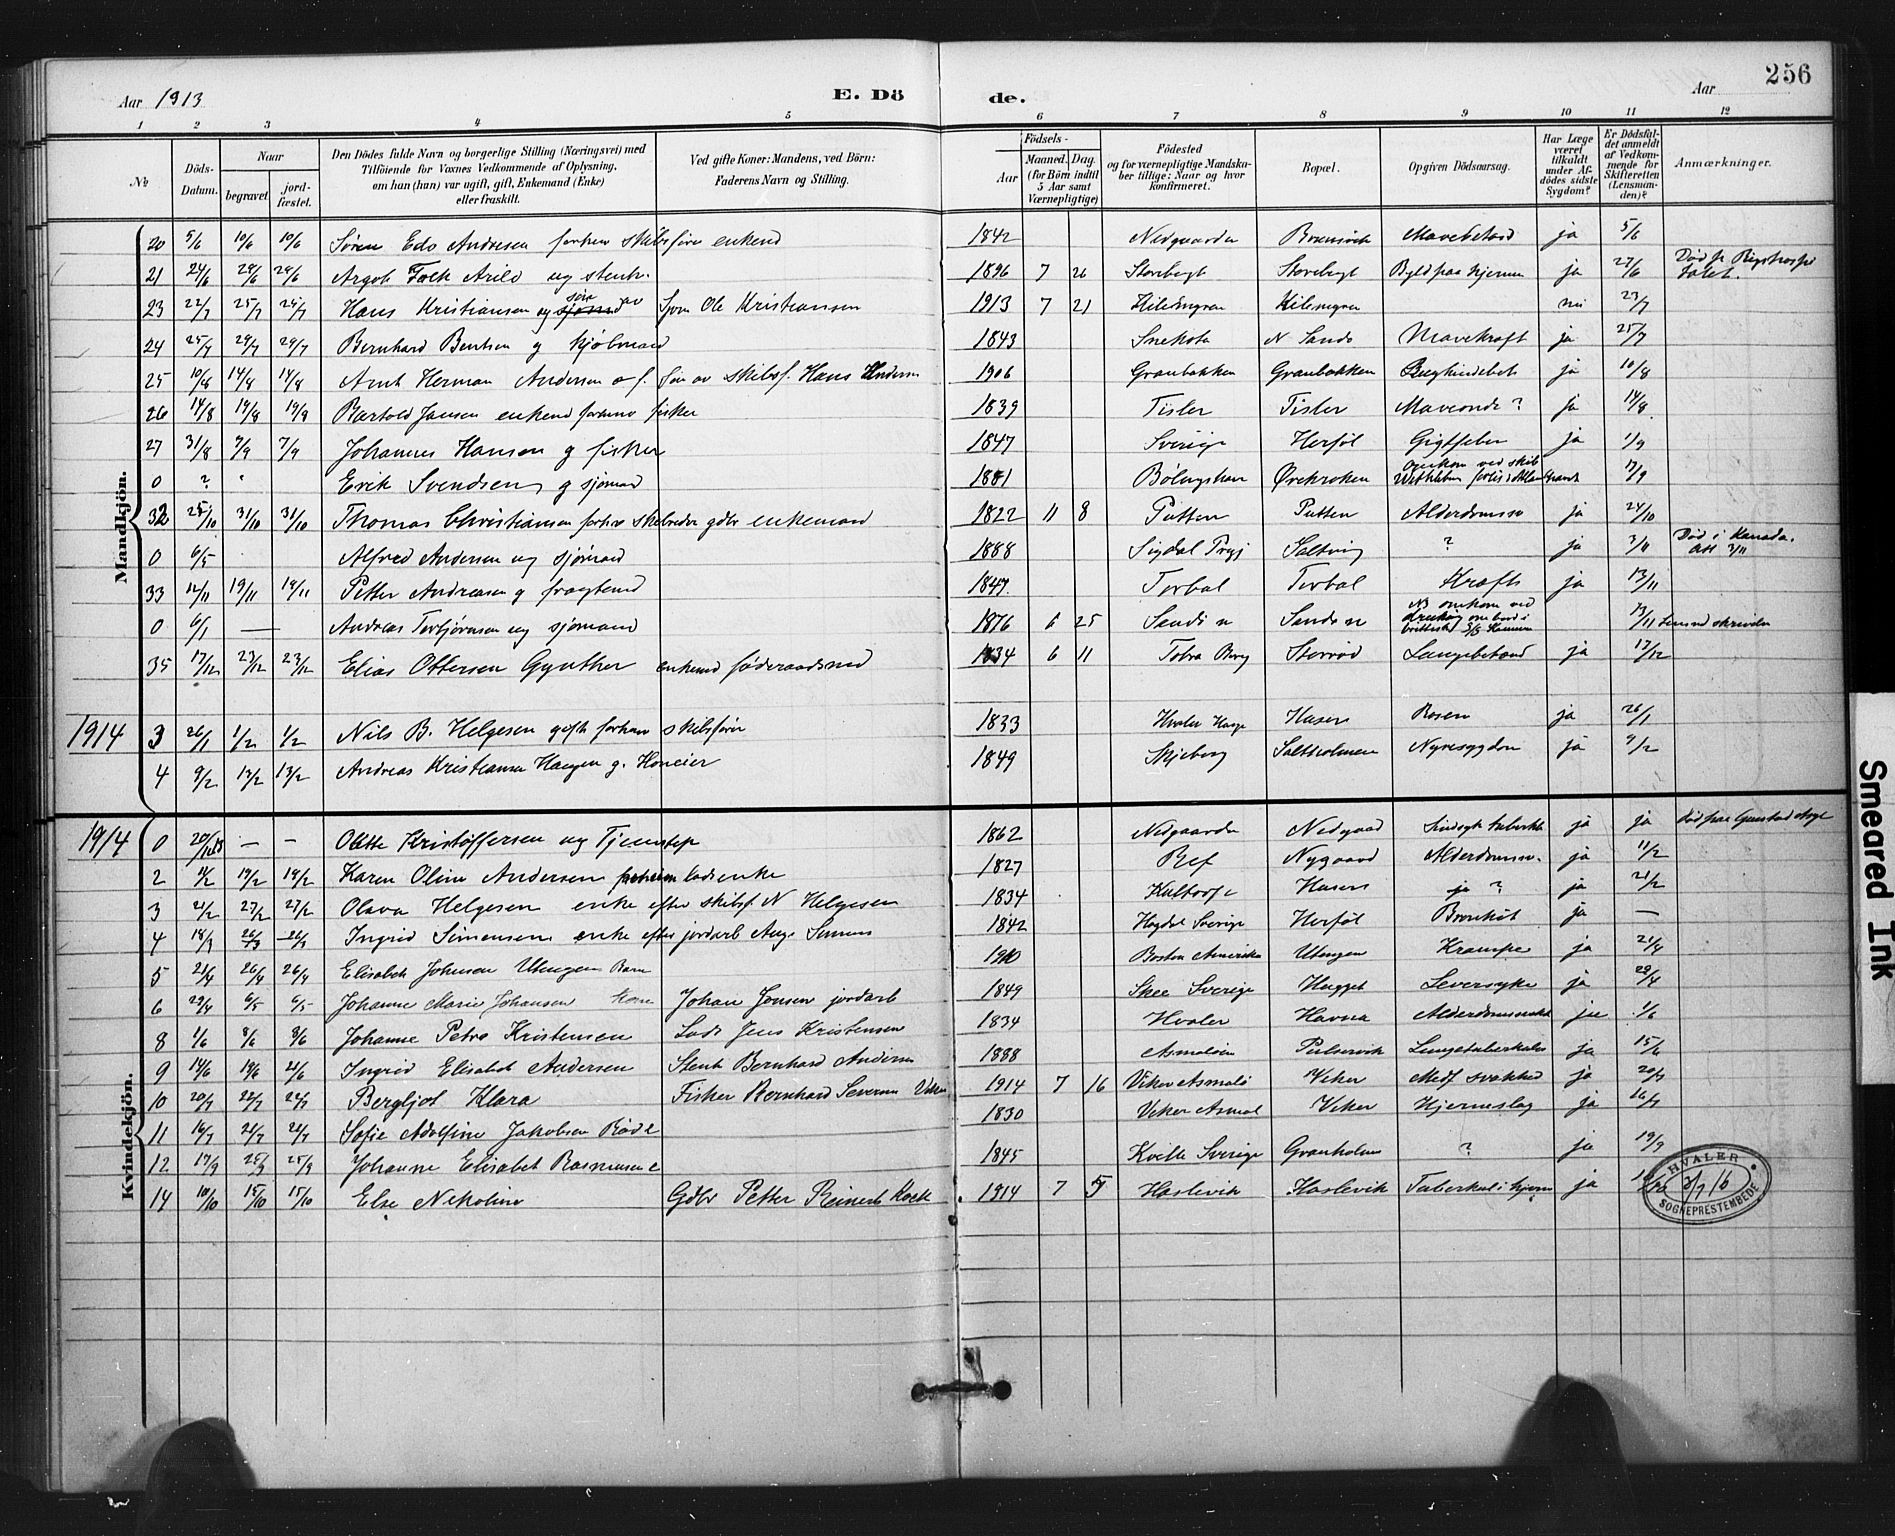 256
Aar 1913 E. Dö de. Aar
1 2 3 4 5 6 7 8 9 10 11 12
No Döds-Datum. Naar begravet jord-fæstet. Den Dödes fulde Navn og borgerlige Stilling (Næringsvei) med Tilföiende for Voxnes Vedkommende af Oplysning, om han (hun) var ugift, gift, Enkemand (Enke) eller fraskilt. Ved gifte Koner: Mandens, ved Börn: Faderens Navn og Stilling. Födsels- Aar Maaned. Dag. (for Börn indtil 5 Aar samt Værnepligtige) Födested og for værnepligtige Mandska-ber tillige: Naar og hvor konfirmeret. Bopæl. Opgiven Dödsaarsag. Har Læge været tilkaldt under Af-dödes sidste Sygdom? Er Dödsfal-det anmeldt af Vedkom-mende for Skifteretten (Lensman-den)? Anmærkninger.
Mandkjön.
20 5/6 10/6 10/6 Søren Edv Andresen forhen skibsfører enkemd 1842 Nedgaarden Brænsvik ja 5/6
21 24/6 28/6 28/6 Argob Falk Arild ug stenh. 1896 7 26 Storebugt Storebugt Byld paa hjernen ja 27/6 Død på Rigshospitalet.
23 22/7 25/7 25/7 Hans Kristiansen ug søn av Sjom Ole Kristiansen 1913 7 21 nei 23/7
24 25/7 29/7 29/7 Bernhard Bentsen g kjøbmand 1843 Snekota N Sande Mavekræft ja 25/7
25 10/8 14/8 14/8 Arnt Herman Andersen søn av skibsf. Hans Andersen 1906 Granbakken Granbakken ja 10/8
26 14/8 19/8 19/8 Bartold Jansen enkemd forhenv fisker 1839 Tisler Tisler Maveonde ? ja 14/8
27 31/8 7/9 7/9 Johannes Hansen g fisker 1847 Sverige Herføl Gigtfeber ja 1/9
0 ? " Erik Svendsen g sjømand 1881 Ørekroken omkom ved skib 17/9
32 25/10 31/10 31/10 Thomas Christiansen forhv skibsreder gdbr enkemand 1822 11 8 Putten Putten Alderdomssv ja 24/10
0 6/5 Alfred Andersen ug sjømand 1888 ? ja 3/11 Død i Kanada. Att 3/11
33 12/11 19/11 19/11 Petter Andreasen g fragtemd 1847. Torbal Torbal Kræft ja 13/11
0 6/1 — Andreas Torbjørnsen ug sjømand 1876 6 25 Sanden Sanden omkom ved drukning ombord i S/S 17/11
35 17/12 23/12 23/12 Elias Ottersen Gynther enkemd føderaadsmd 1834 6 11 Størrød Lungebetænd ja 17/12
1914 3 26/1 1/2 1/2 Nils B. Helgesen gift forhenv skibsfører 1833 Hvaler Husen Rosen ja 26/1
4 9/2 13/2 13/2 Andreas Kristiansen Haugen g. 1849 Skjeberg Saltholmen Nyresygdom ja 9/2
Kvindekjön.
1914 0 20/12 13 — — Olette Kristoffersen ug Tjenestep 1862 Nedgaarden Nedgaard ja ja død paa Gaustad Asyl
2 19/2 19/2 Karen Oline Andersen enke 1827 Ref Nygaard Alderdomssv. ja 11/2
3 21/2 27/2 27/2 Olava Helgesen enke efter skibsf N Helgesen 1834 Husen ja ? ja 21/2
4 18/3 26/3 26/3 Ingrid Simensen enke efter jordarb Aug. Simens 1842 Hogdal Sverige Herføl Bronkit ja —
5 21/4 26/4 26/4 Elisabeth Johnsen Utengen Barn 1910 Boston Amerika Utengen Krampe ja 21/4
6 29/4 6/5 6/5 Johanne Marie Johansen Kone Johan Jonsen jordarb 1849 Skee Sverige Hugget Leversyke ja 29/4
8 1/6 8/6 8/6 Johanne Petra Kristensen Lods Jens Kristensen 1834 Hvaler Havna Alderdomssvækk ja 1/6
9 14/6 19/6 21/6 Ingrid Elisabet Andersen Stenh Bernhard Andersen 1888 Asmaløen Pulservik Lungetuberkulos ja 15/6
10 20/7 22/7 24/7 Bergljot Klara Fisker Bernhard Severin Viker 1914 7 16 Viker Asmalø Viker Medf svakhed ja 20/7
11 16/7 21/7 21/7 Sofie Adolfine Jakobsen Rød e 1830 Viker Asmal Viker Hjerneslag ja 16/7
12 17/9 25/9 25/9 Johanne Elisabet Rasmussen e 1845 Kville Sverige Granholmen ? ja 19/9
14 10/10 15/10 15/10 Else Nikoline Gdbr Petter Reinert Kock 1914 7 5 Haslevik Haslevik Tuberkul i hjernen ja
HVALER 3/7 16 SOGNEPRESTEMBEDE
Smeared Ink